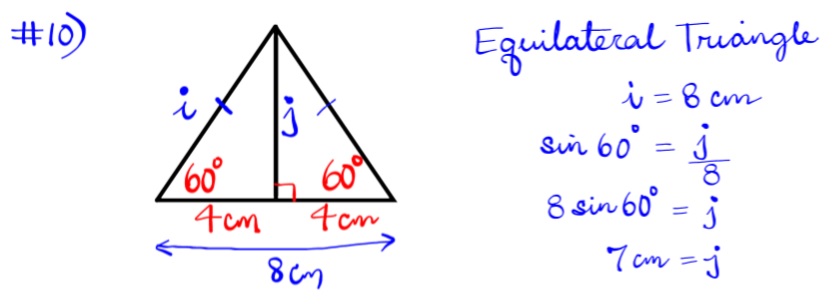 #10)
i
j
60°
60°
4cm
4cm
8cm
Equilateral Triangle
i = 8 cm
sin 60° = j/8
8 sin 60° = j
7 cm = j